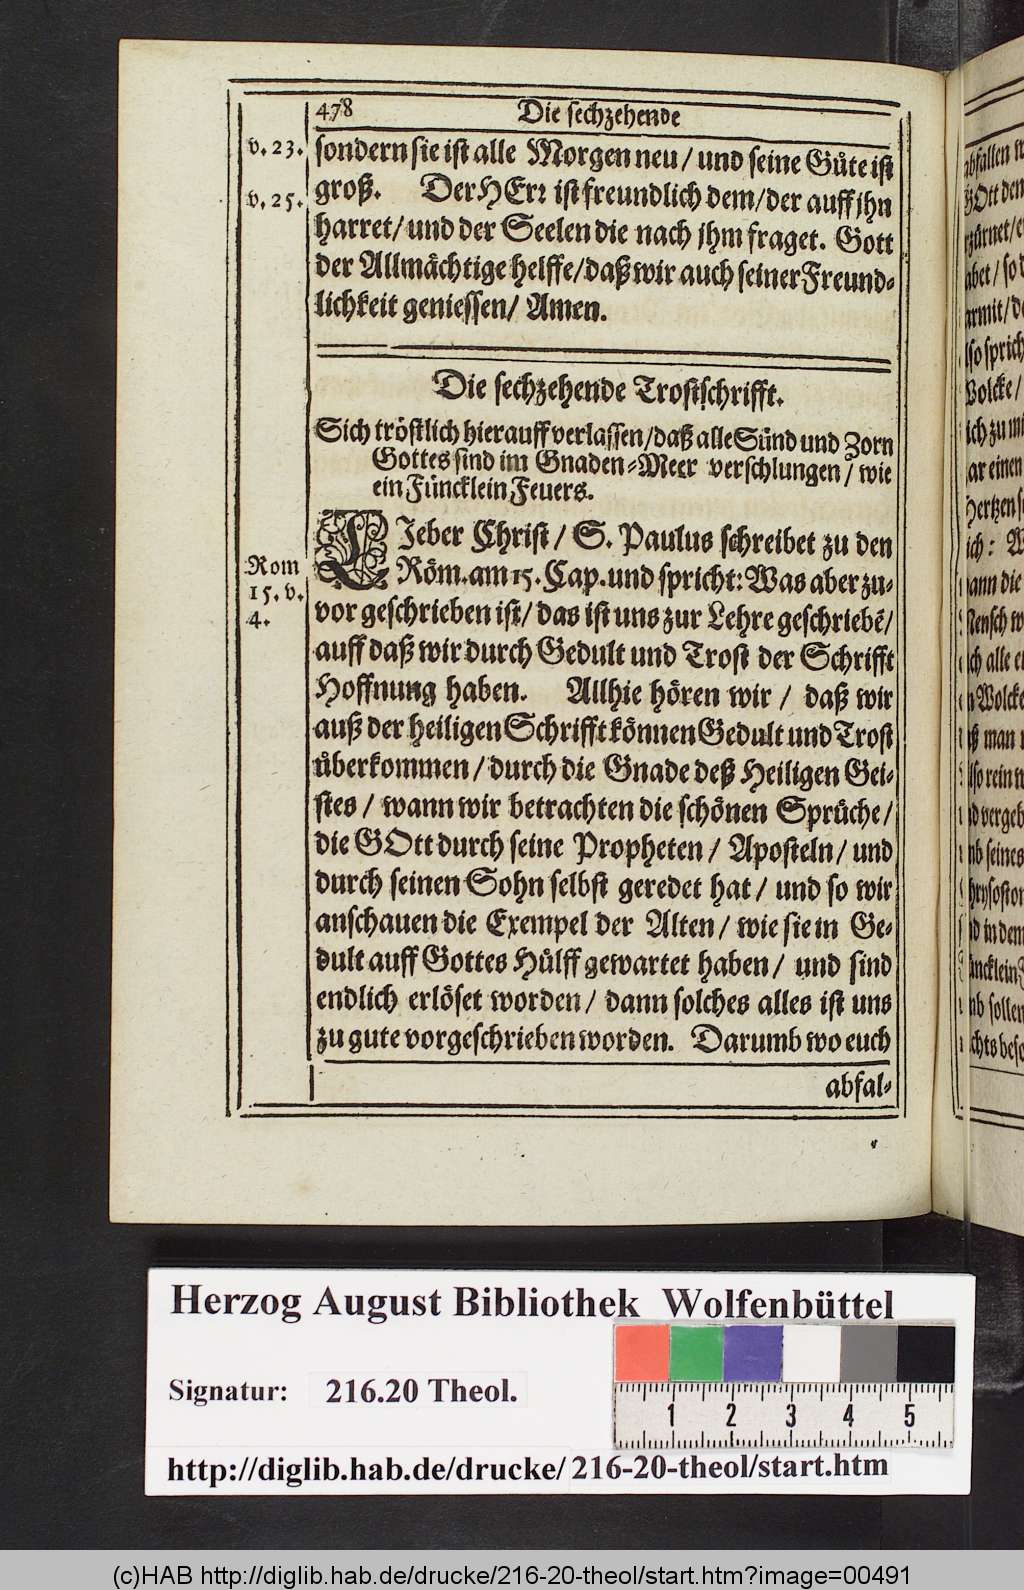 478 Die sechzehende
v. 23. sondern sie ist alle Morgen neu / und seine Gůte ist
v. 25. groß. Der HErꝛ ist freundlich dem / der auff jhn
harret / und der Seelen die nach jhm fraget. Gott
der Allmächtige helffe / daß wir auch seiner Freund-
lichkeit geniessen / Amen.
Die sechzehende Trostschrifft.
Sich tröstlich hierauff verlassen / daß alle Sünd und Zorn
Gottes sind im Gnaden-Meer verschlungen / wie
ein Füncklein Feuers.
LIeber Christ / S. Paulus schreibet zu den
Rom Röm. am 15. Cap. und spricht: Was aber zu-
15. v.
4. vor geschrieben ist / das ist uns zur Lehre geschriebē /
auff daß wir durch Gedult und Trost der Schrifft
Hoffnung haben. Allhie hören wir / daß wir
auß der heiligen Schrifft können Gedult und Trost
ůberkommen / durch die Gnade deß Heiligen Gei-
stes / wann wir betrachten die schönen Sprůche /
die GOtt durch seine Propheten / Aposteln / und
durch seinen Sohn selbst geredet hat / und so wir
anschauen die Exempel der Alten / wie sie in Ge-
dult auff Gottes Hülff gewartet haben / und sind
endlich erlöset worden / dann solches alles ist uns
zu gute vorgeschrieben worden. Darumb wo euch
abfal-
Herzog August Bibliothek Wolfenbüttel
Signatur: 216.20 Theol.
1 2 3 4 5
http://diglib.hab.de/drucke/216-20-theol/start.htm
(c)HAB http://diglib.hab.de/drucke/216-20-theol/start.htm?image=00491